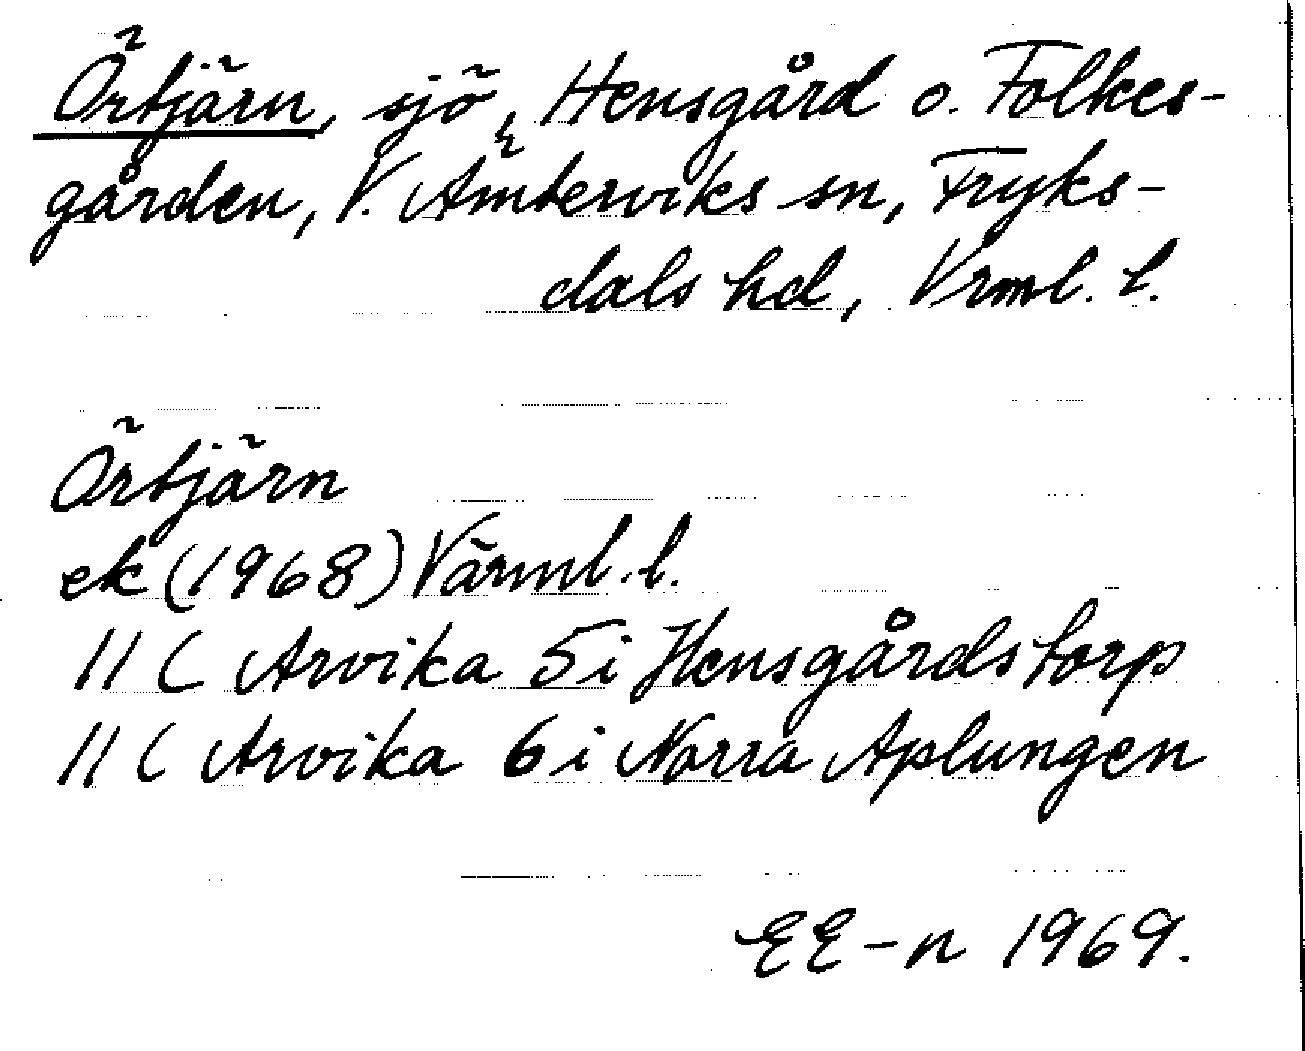 Örtjärn, sjö, Hensgård o. Folkes-
gården, V. Ämterviks sn, Fryks-
dals hd, Vrml. l.
Örtjärn
ek (1968) Värml. l.
11 C Arvika 5 i Hensgårdstorp
11 C Arvika 6 i Norra Aplungen
EE-n 1969.